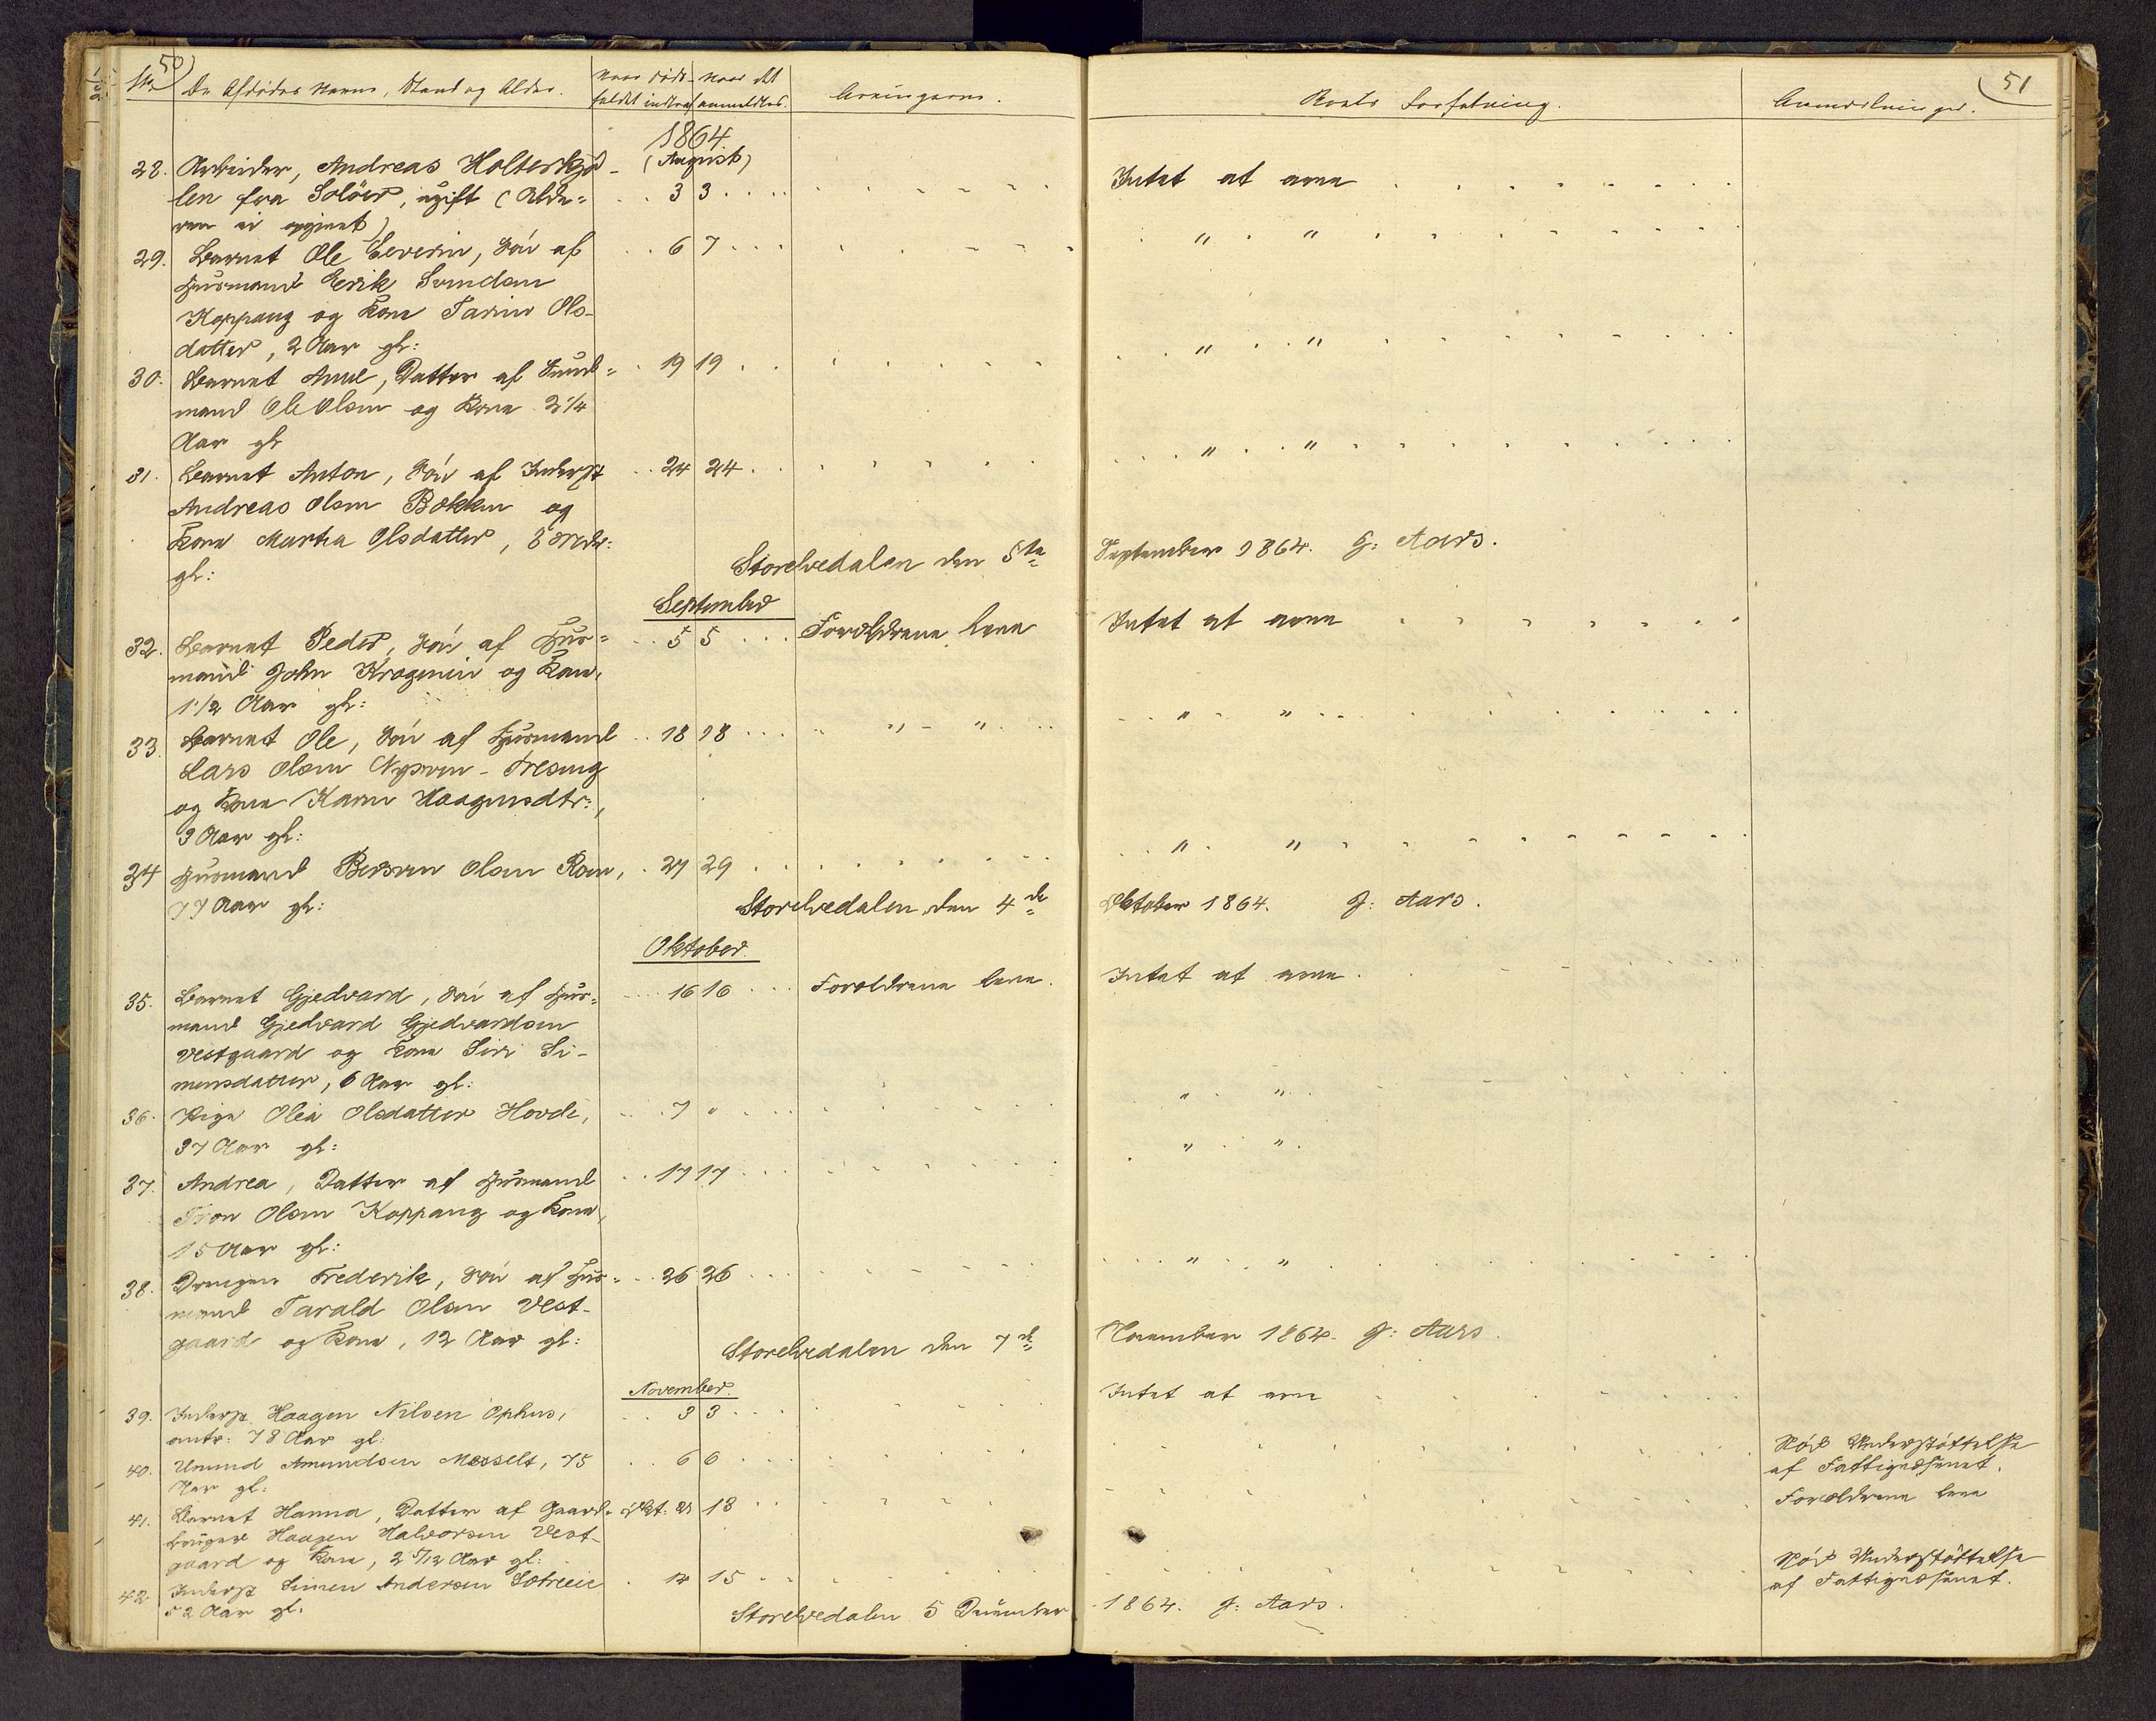 50)
No De Afdødes Navne, Stand og Alder. Naar døds- Naar det Arvingerne.
faldet indtraf anmeldtes.
1864.
(August)
28. Arbeider, Andreas Holterkjø-
len fra Solöer, ugift (Alde=
ren ei opgivet) 3 3
29. Barnet Ole Severin, Sön af 6 7
Husmand Erik Svendsen
Koppang og Kone Olo-
datter, 2 Aar gl:
30. Barnet Anne, Datter af 19 19
mand Ole Olsen og Kone 2 1/4
Aar gl
31. Barnet Anton, Sön af Inderst 24 24
Andreas Olsen Bakken og
Kone Martha Olsdatter, 3
gl:
Storelvedalen den 5te
September
32. Barnet Peder, Sön af Hus= 5 5 Forældrene leve
mand John og Kone,
1 1/2 Aar gl:
33. Barnet Ole, Sön af Husmand 18 18 " - "
Lars Olsen
og Kone Karen Haagensdtr:,
3 Aar gl:
34 Husmand Olsen 27 29
77 Aar gl:
Storelvedalen den 4de
Oktober.
35. Barnet Gjedvard, Sön af Hus= 16 16 Forældrene leve.
mand Gjedvard Gjedvardsen
Vestgaard og Kone Siri Si-
mensdatter, 6 Aar gl:
36. Pige Olea Olsdatter Hovde, 7 "
37 Aar gl:
37. Andrea, Datter af Husmand 17 17
Tron Olsen Koppang og Kone,
15 Aar gl:
38. Drengen Frederik, Sön af Hus= 26 26
mand Tarald Olsen Vest-
gaard og Kone, 12 Aar gl:
Storelvedalen den 7de
November.
39. Inderst Haagen Nilsen Ophus, 3 3
78 Aar gl:
40. Amundsen Messelt, 75 6 6
Aar gl:
41. Barnet Hanna, Datter af Gaard= Okt: 13
bruger Haagen Halvorsen Vest-
gaard og Kone, 2 5/12 Aar gl:
42 Inderst Simen Andersen 14 15
52 Aar gl.
Storelvedalen 5 December
51
Boets Forfatning. Anmerkninger.
Intet at arve
" "
" "
" "
September 1864. J: Aars.
Intet at arve
" "
" "
Oktober 1864. J: Aars.
Intet at arve.
" "
" "
" "
November 1864. J: Aars.
Intet at arve
Nöd Understöttelse
af Fattigvæsenet.
Forældrene leve
Nöd Understöttelse
af Fattigvæsenet.
1864. J: Aars.